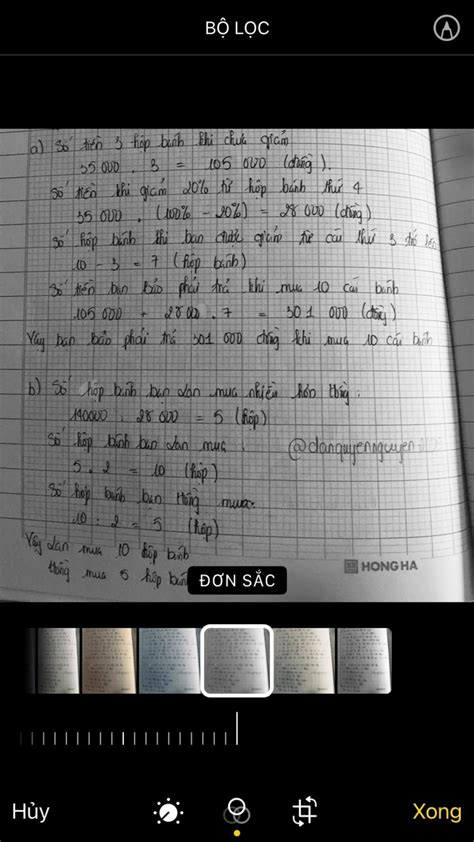 BỘ LỌC
a) Số tiền 3 hộp bánh khi chưa giảm
35 000 . 3 = 105 000 (đồng).
Số tiền khi giảm 20% từ hộp bánh thứ 4
35 000 . (100% - 20%) = 28 000 (đồng)
Số hộp bánh khi bạn được giảm từ cái thứ 3 trở lên
10 - 3 = 7 (hộp bánh)
Số tiền bạn bảo phải trả khi mua 10 cái bánh
105 000 + 28 00 . 7 = 301 000 (đồng)
Vậy bạn bảo phải trả 301 000 đồng khi mua 10 cái bánh
b) Số hộp bánh bạn Lan mua nhiều hơn Hồng.
140000 : 28 000 = 5 (hộp)
Số hộp bánh bạn Lan mua.
@danquyennguyen
5 . 2 = 10 (hộp)
Số hộp bánh bạn Hồng mua.
10 : 2 = 5 (hộp)
Vậy Lan mua 10 hộp bánh
HONG HA
Hồng mua 5 hộp bánh
ĐƠN SẮC
Hủy
Xong